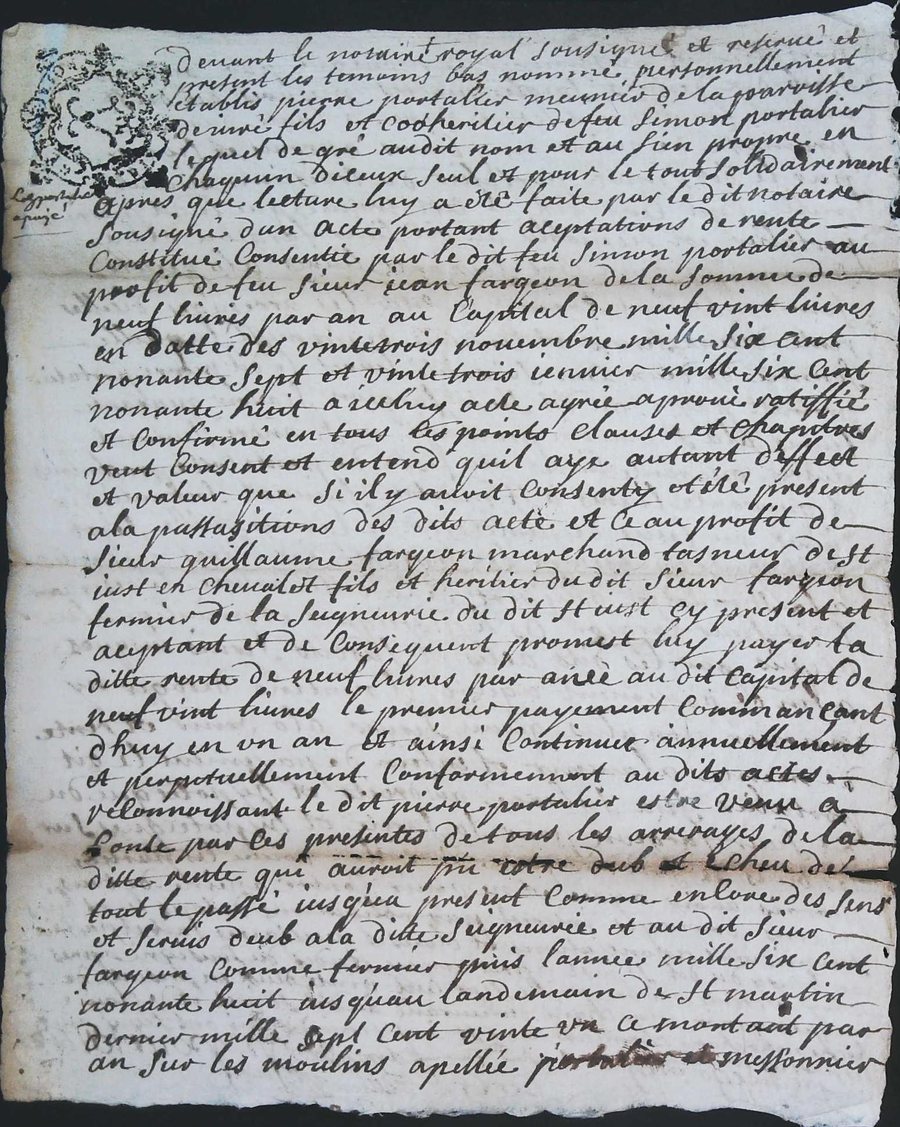 devant le notaire royal sousigné et reservé et
present les temoins bas nommé personnellement
établis pierre portalier meunier de la parroisse
de iuré fils et coheritier de feu simon portalier
lequel de gré audit nom et au sien propre en
Chaquun diceux seul et pour le tout solidairement
apres que lecture luy a été faite par le dit notaire
sousigné dun acte portant aceptations de rente
Constitué Consentie par le dit feu simon portalier au
profit de feu sieur iean fargeon de la somme de
neuf livres par an au Capital de neuf vint livres
en datte des vintetrois novembre mille six cent
nonante sept et vintetrois ienvier mille six cent
nonante huit a iceluy acte agrée aprouvé ratiffié
et Confirmé en tous les points clauses et chapitres
veut Consent et entend quil aye autant deffect
et valeur que si il y avoit Consenty et été present
a la passasitions des dits acte et ce au profit de
sieur guillaume fargeon marchand tasneur de st
iust en chevalet fils et heritier du dit sieur fargeon
fermier de la seigneurie du dit st iust cy present et
aceptant et de Consequent promest luy payer la
ditte rente de neuf livres par anéé au dit capital de
neuf vint livres le premier payement Commancant
dhuy en vn an et ainsi Continuer annuellement
et perpetuellement Conformement au dits actes
reconnoissant le dit pierre portalier estre venu a
Conte par ces presentes de tous les arrerages de la
ditte rente qui auroit pu estre deub et echeu de
tout le passé iusqua present Comme encore des sens
et servis deub a la ditte seigneurie et au dit sieur
fargeon Comme fermier puis lannee mille six cent
nonante huit iusquau landemain de st martin
dernier mille sept cent vinte vn ce montant par
an sur les moulins apellée portalier et messonnier